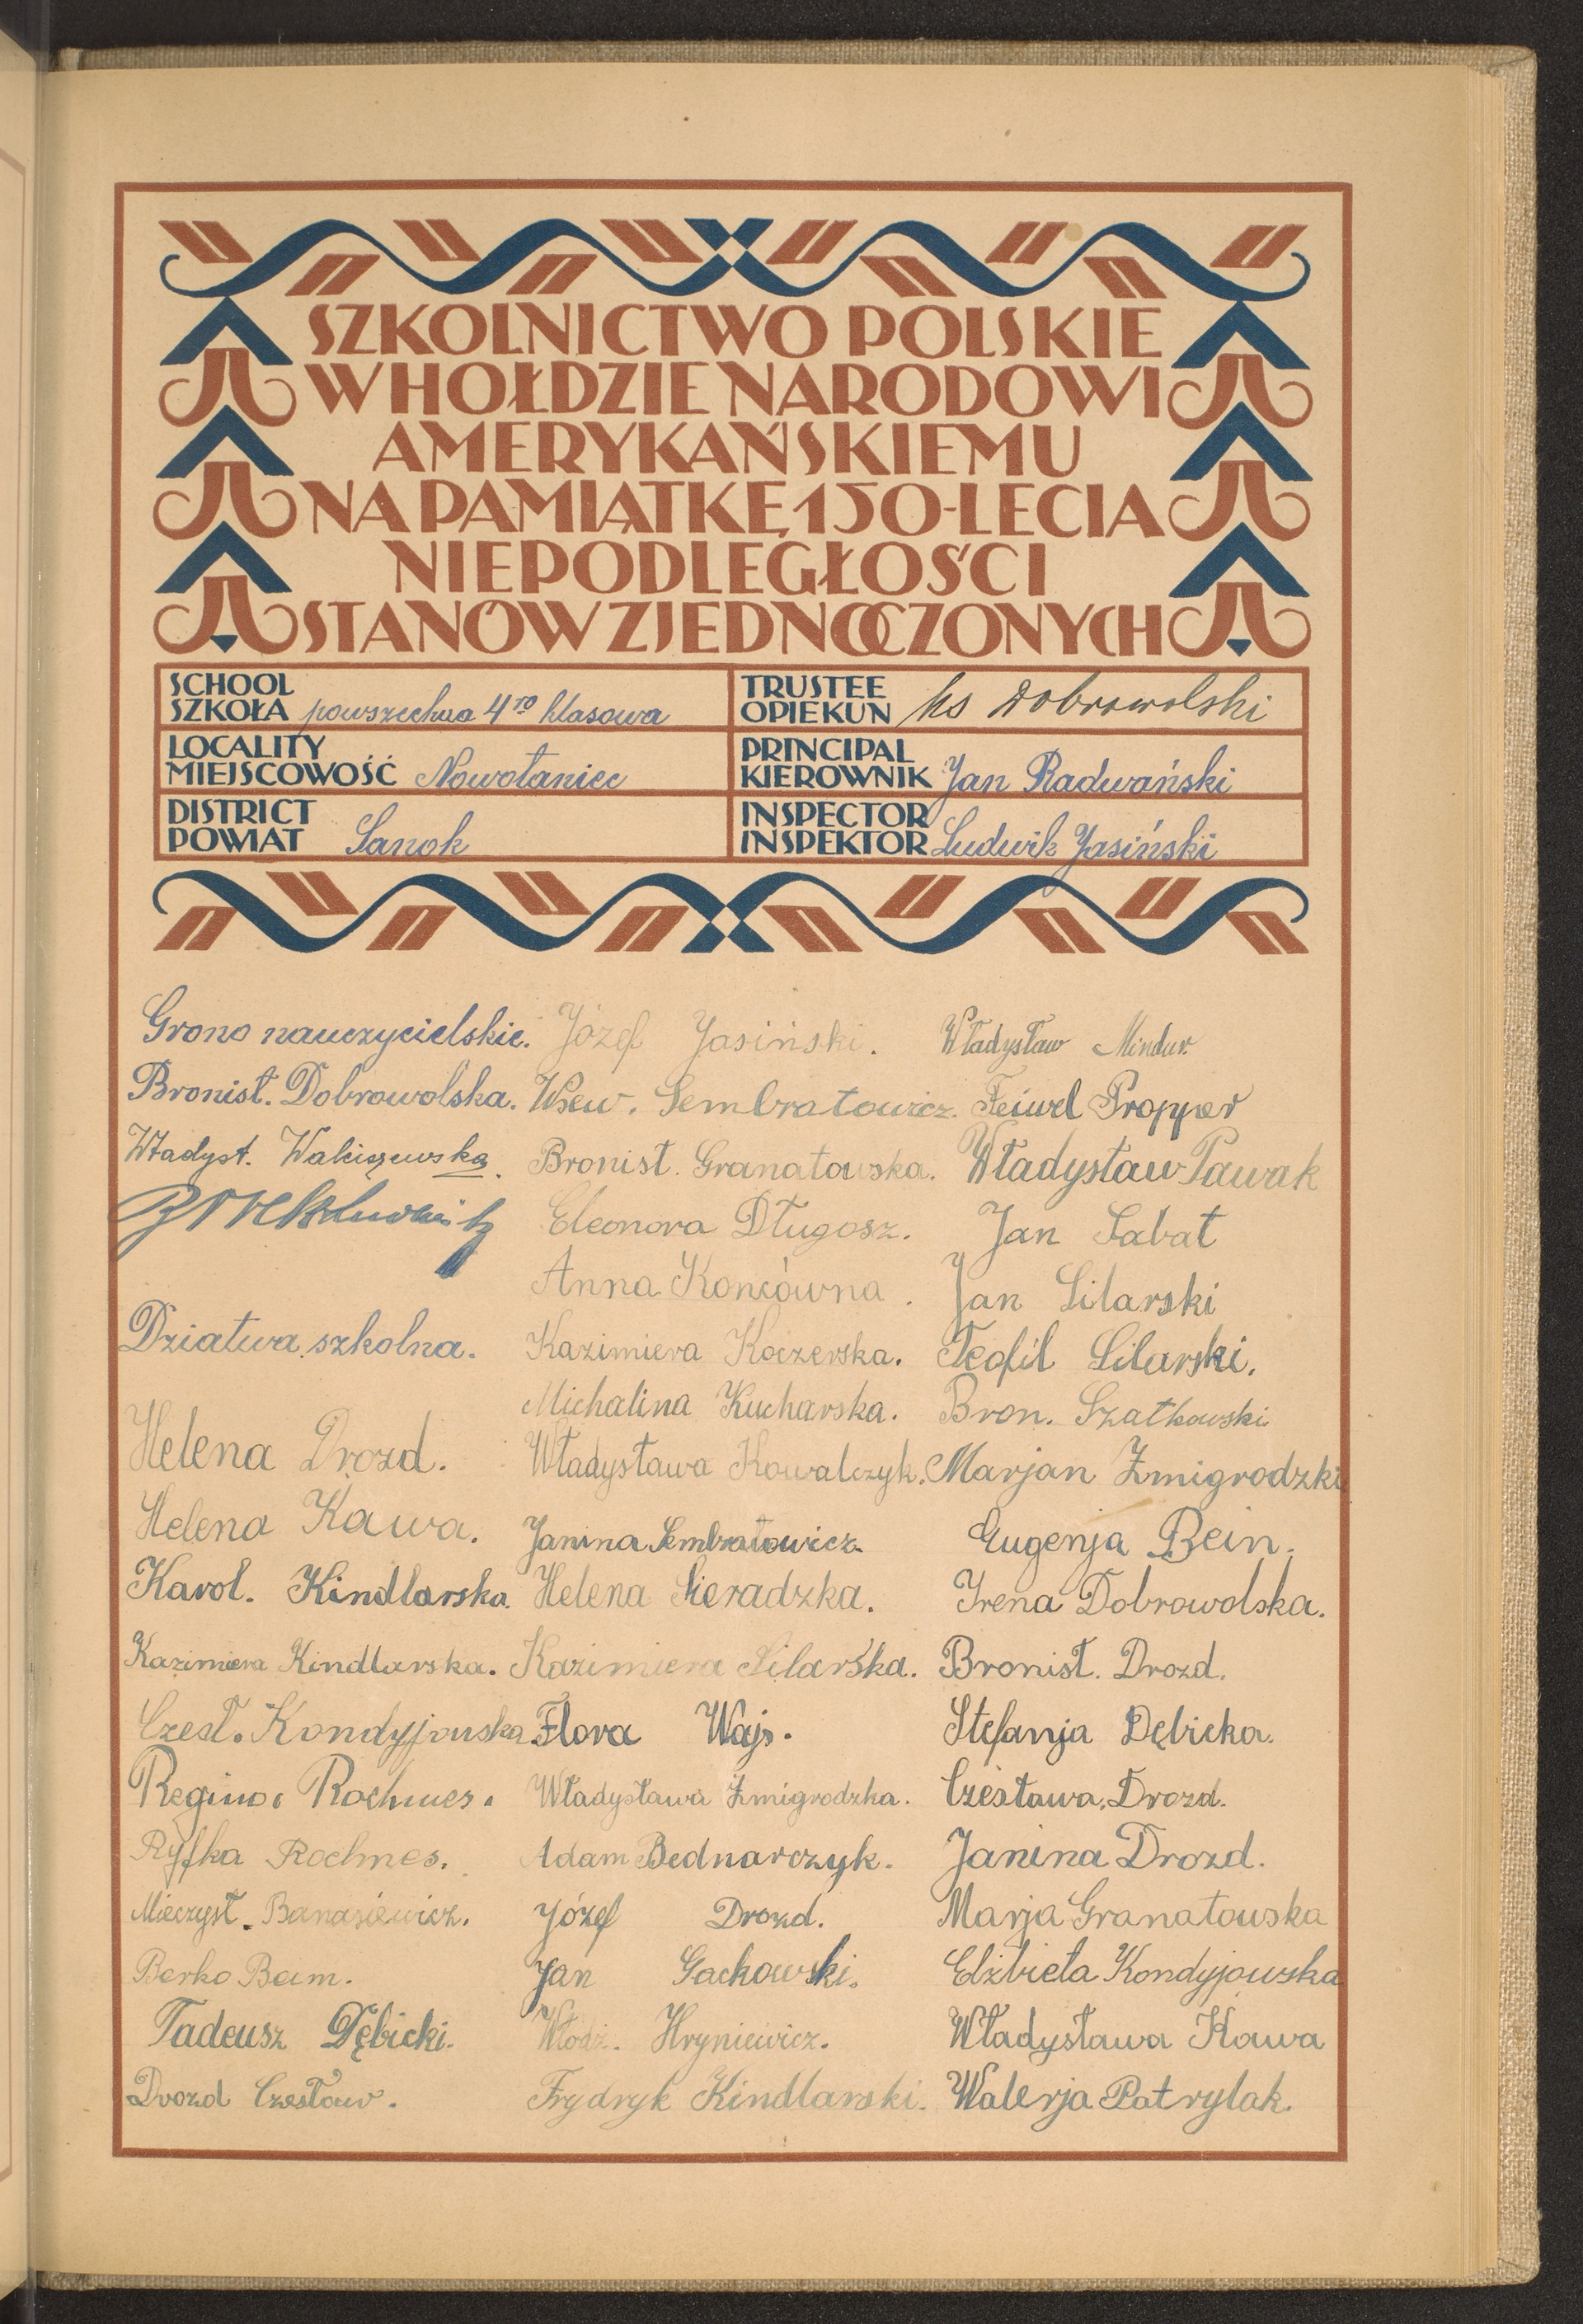 SZKOLNICTWO POLSKIE
W HOŁDZIE NARODOWI
AMERYKAŃSKIEMU
NA PAMIĄTKĘ 150-LECIA
NIEPODLEGŁOŚCI
STANÓW ZJEDNOCZONYCH
SCHOOL
SZKOŁA powszechna 4ro klasowa
LOCALITY
MIEJSCOWOŚĆ Nowotaniec
DISTRICT
POWIAT Sanok
TRUSTEE
OPIEKUN ks Dobrowolski
PRINCIPAL
KIEROWNIK Jan Radwański
INSPECTOR
INSPEKTOR Ludwik Jasiński
Grono nauczycielskie.
Bronisł. Dobrowolska.
Władysł. Waliszewska.
Dziatwa szkolna.
Helena Drozd.
Helena Kawa.
Karol. Kindlarska.
Kazimiera Kindlarska.
Czesł. Kondyjowska
Regina Rochmes.
Ryfka Rochmes.
Mieczysł. Banasiewicz.
Berko Beim.
Tadeusz Dębicki.
Drozd Czesław.
Józef Jasiński.
Wsew. Sembratowicz.
Bronisł. Granatowska.
Eleonora Długosz.
Anna Koncówna.
Kazimiera Koczerska.
Michalina Kucharska.
Władysława Kowalczyk.
Janina Sembratowicz
Helena Sieradzka.
Kazimiera Silarska.
Flora Wajs.
Władysława Żmigrodzka.
Adam Bednarczyk.
Józef Drozd.
Jan Gackowski.
Włodz. Hryniewicz.
Frydryk Kindlarski.
Władysław Mindur.
Feiwel Propper
Władysław Pawak
Jan Sabat
Jan Silarski
Teofil Silarski.
Bron. Szatkowski
Marjan Żmigrodzki
Eugenja Bein.
Irena Dobrowolska.
Bronisł. Drozd.
Stefanja Dębicka.
Czesława Drozd.
Janina Drozd.
Marja Granatowska
Elżbieta Kondyjowska
Władysława Kawa
Walerja Patrylak.